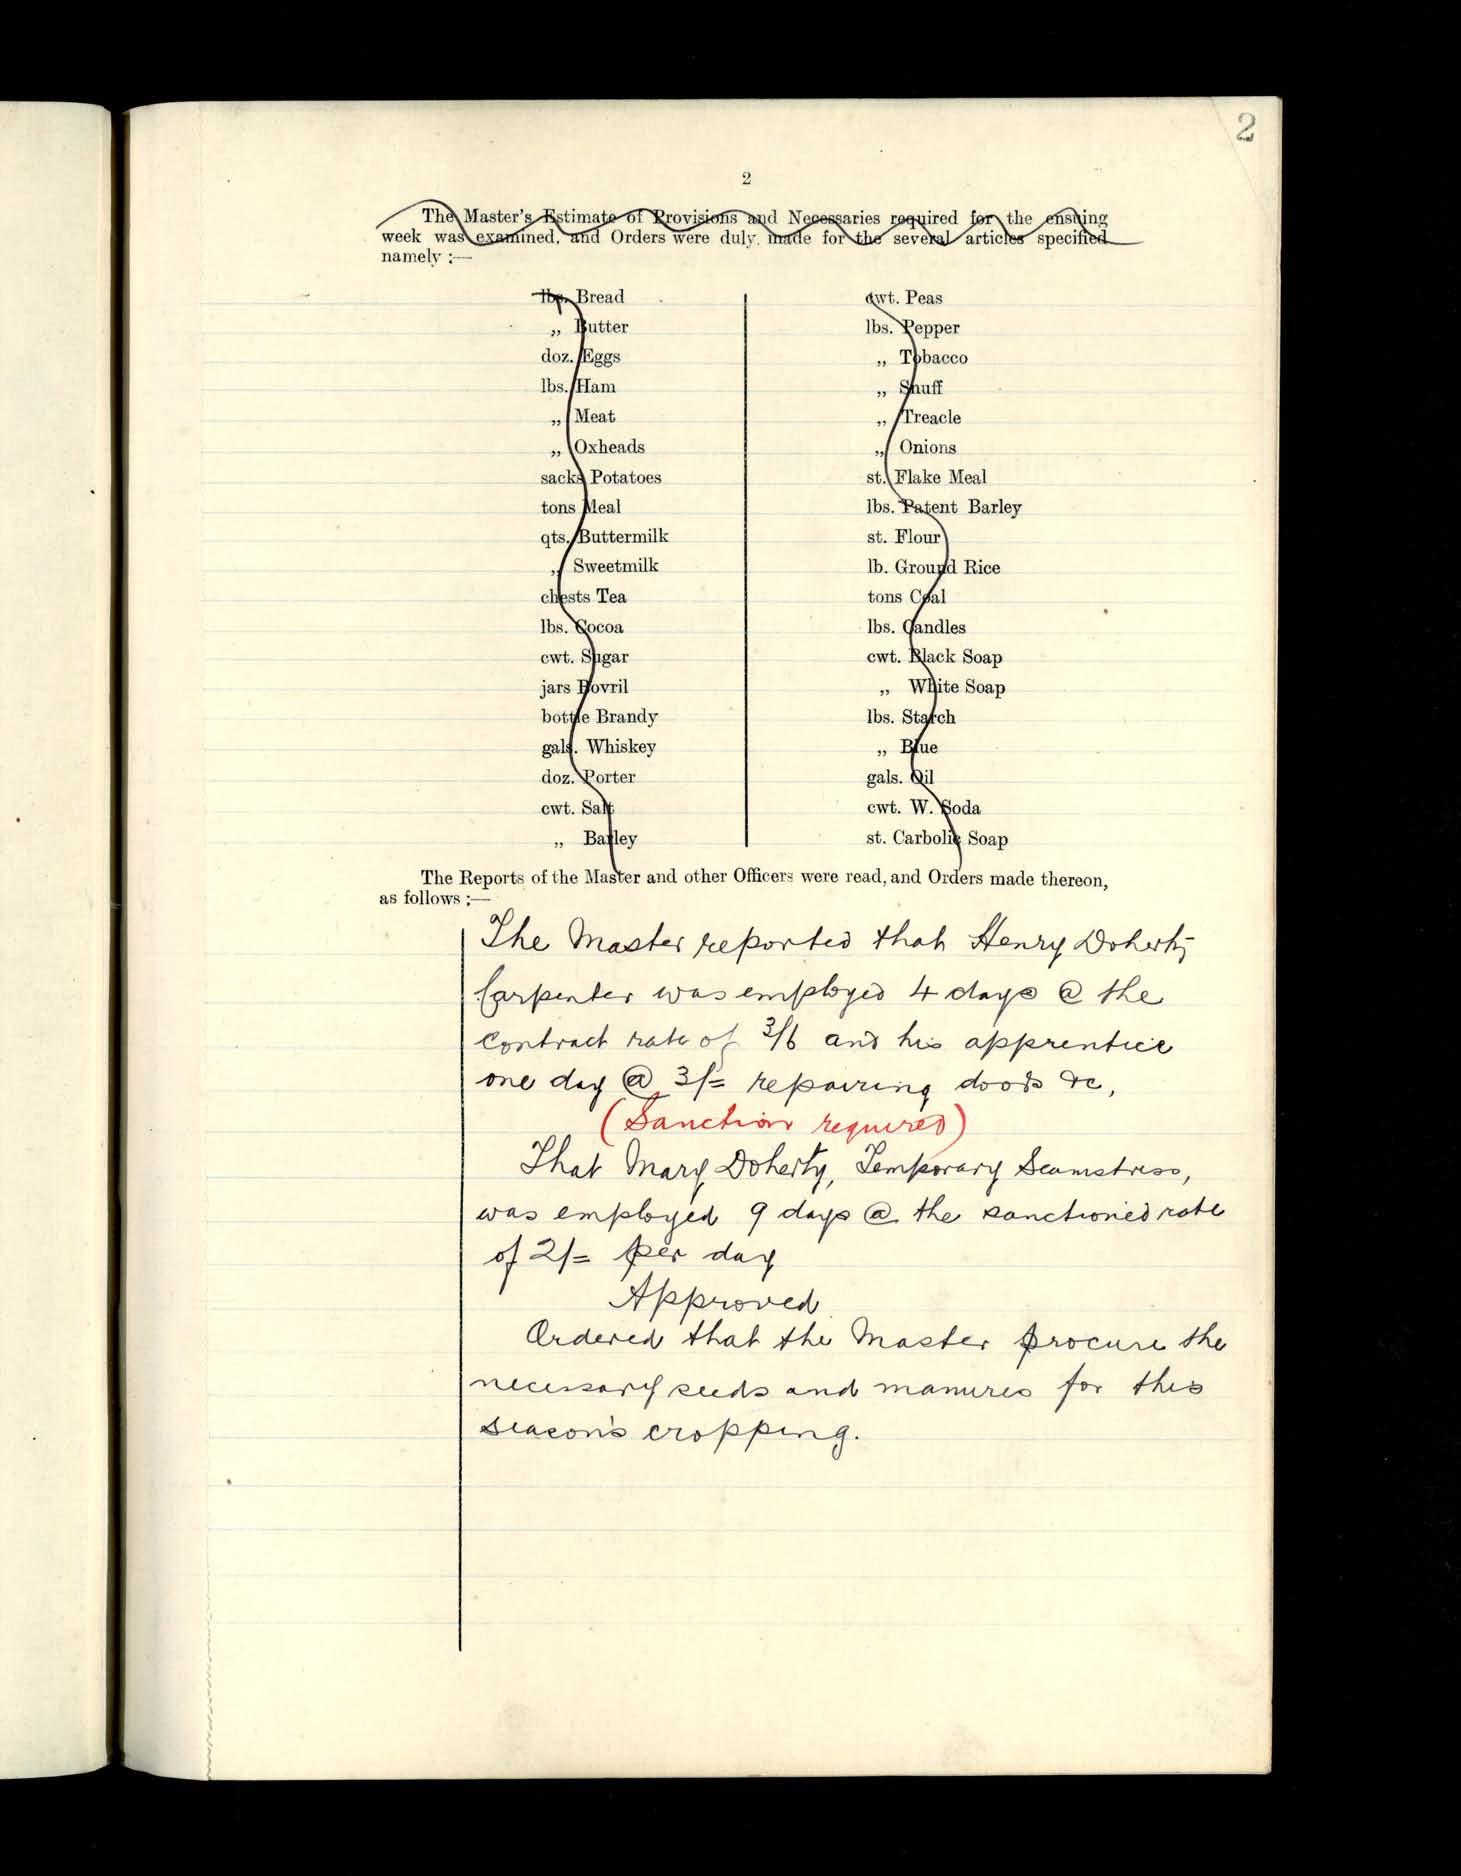 2
2
The Master's Estimate of Provisions and Necessaries required for the ensuing
week was examined, and Orders were duly made for the several articles specified
namely :—
lbs. Bread
„ Butter
doz. Eggs
lbs. Ham
„ Meat
„ Oxheads
sacks Potatoes
tons Meal
qts. Buttermilk
„ Sweetmilk
chests Tea
lbs. Cocoa
cwt. Sugar
jars Bovril
bottle Brandy
gals. Whiskey
doz. Porter
cwt. Salt
„ Barley
cwt. Peas
lbs. Pepper
„ Tobacco
„ Snuff
„ Treacle
„ Onions
st. Flake Meal
lbs. Patent Barley
st. Flour
lb. Ground Rice
tons Coal
lbs. Candles
cwt. Black Soap
„ White Soap
lbs. Starch
„ Blue
gals. Oil
cwt. W. Soda
st. Carbolic Soap
The Reports of the Master and other Officers were read, and Orders made thereon,
as follows :—
The Master reported that Henry Doherty
Carpenter was employed 4 days @ the
contract rate of 3/6 and his apprentice
one day @ 3/= repairing doors &c,
(Sanction required)
That Mary Doherty, Temporary Seamstress,
was employed 9 days @ the sanctioned rate
of 2/= per day
Approved
Ordered that the Master procure the
necessary seeds and manures for this
season's cropping.